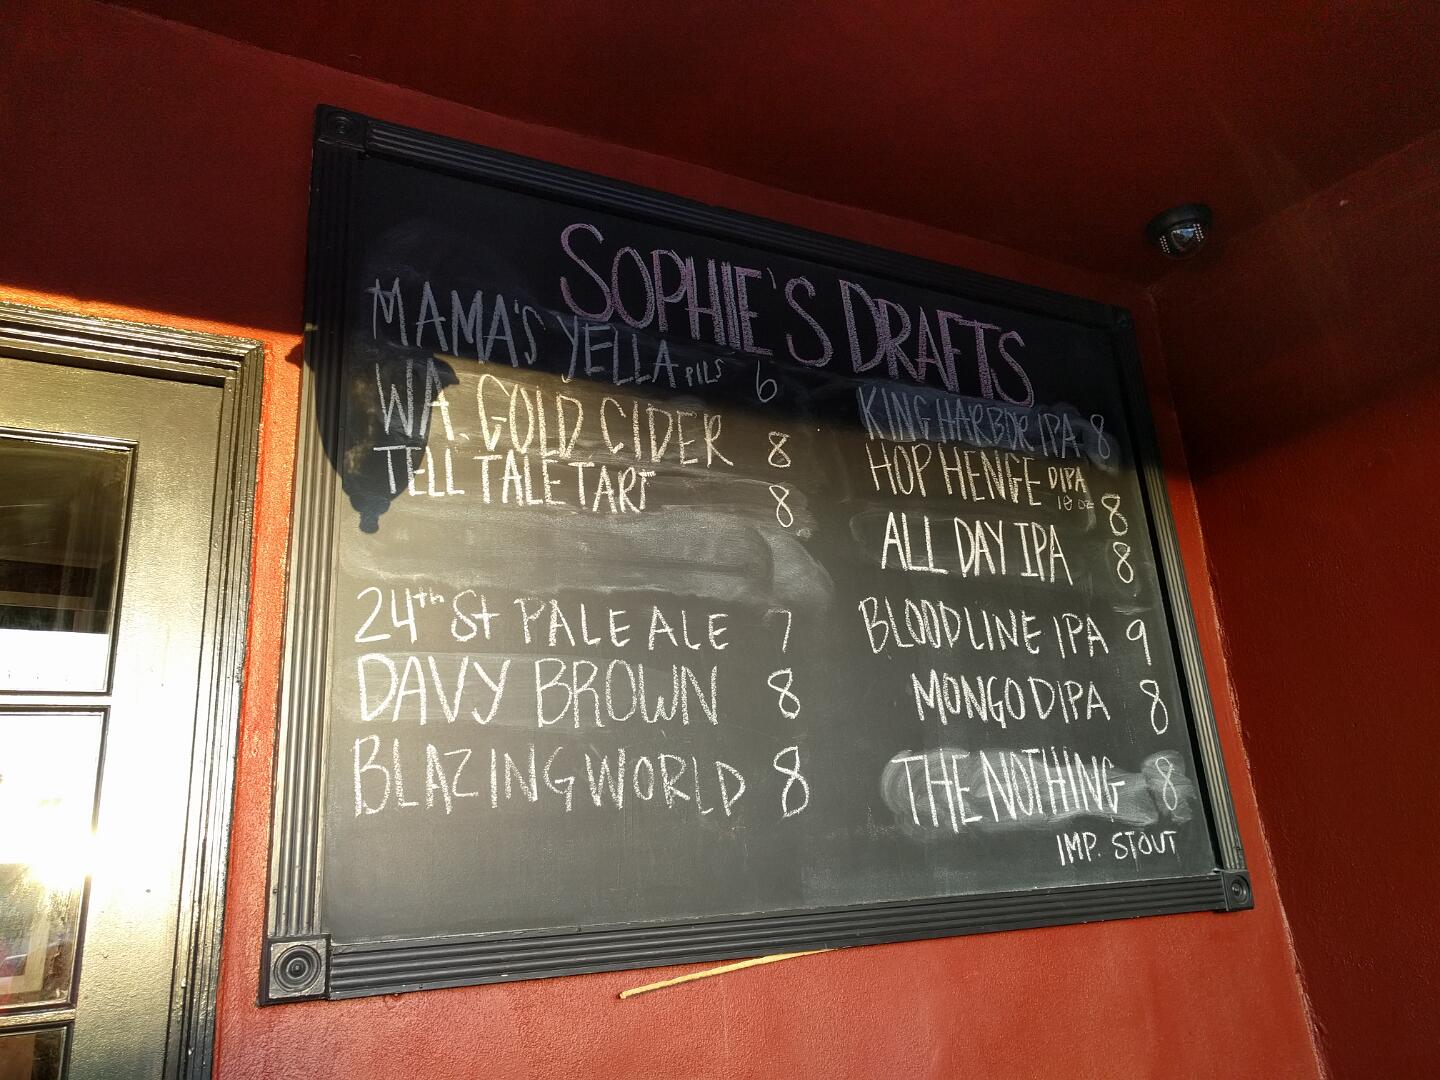 SOPHIE'S DRAFTS
MAMA'S YELLA PILS 6
WA. GOLD CIDER 8
TELL TALE TART 8
24th St PALE ALE 7
DAVY BROWN 8
BLAZING WORLD 8
KING HARBOR IPA 8
HOP HENGE DIPA
10 OZ 8
ALL DAY IPA 8
BLOODLINE IPA 9
MONGO DIPA 8
THE NOTHING 8
IMP. STOUT